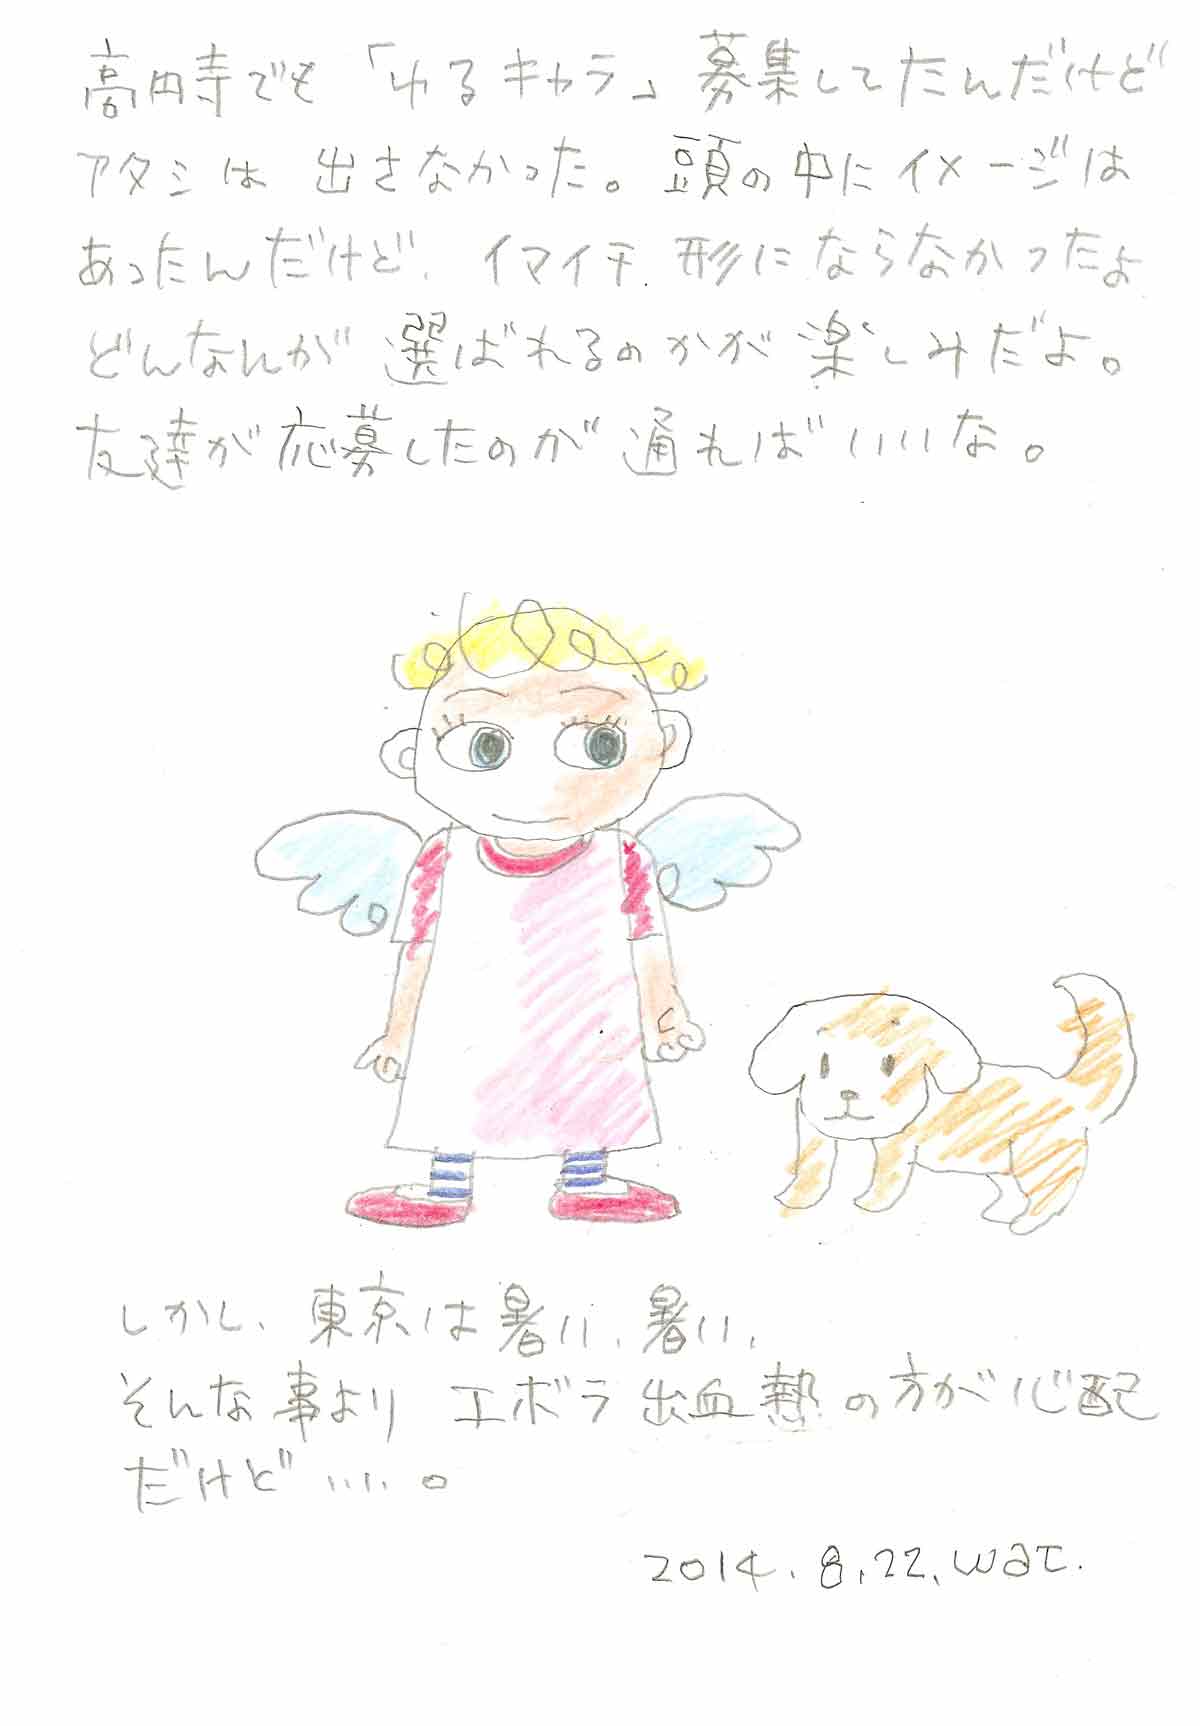 高円寺でも「ゆるキャラ」募集してたんだけど
アタシは 出さなかった。頭の中にイメージは
あったんだけど、イマイチ 形にならなかったよ
どんなんが 選ばれるのかが 楽しみだよ。
友達が応募したのが 通ればいいな。
しかし、東京は暑い、暑い、
そんな事より エボラ出血熱の方が心配
だけど……。
2014.8.22.wat.